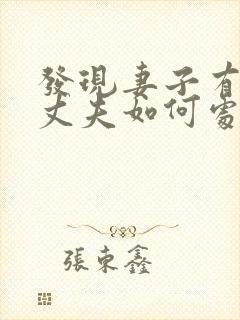 發現妻子有
丈夫如何處
張東鑫